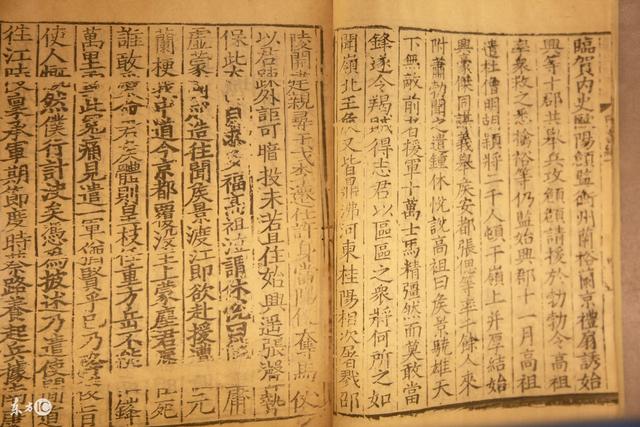 臨賀內史歐陽頠監衡州蘭裕蘭京禮扇誘始
興等十郡共舉兵攻頠頠請援於勃勃令高祖
率衆救之悉擒裕等仍監始興郡十一月高祖
遣杜僧明胡穎將二千人頓于嶺上并厚結始
興豪傑同謀義舉侯安都張偲等率千餘人來
附蕭勃聞之遣鍾休悅說高祖曰侯景驍雄天
下無敵前者援軍十萬士馬精彊然而莫敢當
鋒遂令羯賊得志君以區區之衆將何所之如
聞嶺北王侯又皆鼎沸河東桂陽相次屠戮邵
陵開建親尋干戈李遷仕許身當陽便奪馬仗
以君疎外詎可暗投未若且住始興遥張聲勢
保此太多福高祖泣謂休悅曰庸
虛蒙造往聞侯景渡江即欲赴援遭元
蘭梗我中道今京都覆沒主上蒙塵君死
誰敢愛命君侯體則皇枝任重方岳不能鋒
萬里雪此冤痛見遣一軍猶賢乎已乃旨
使人慨然僕行計決矣憑為披述乃遣使間道
往江陵稟承軍期節度時蔡路養起兵據南
东方IC